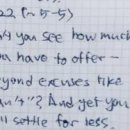 22 (~5-5)
you see how much
you have to offer -
eyond excuses like
n't"? And yet you
ll settle for less.